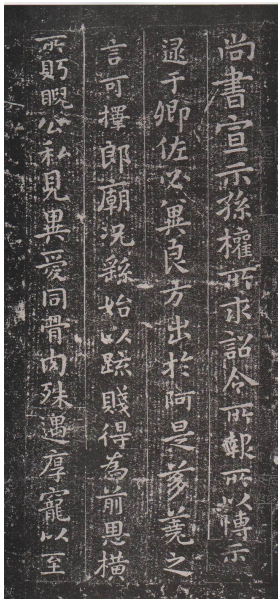 尚書宣示孫權所求詔令所報所以博示
逮于卿佐必異良方出於阿是芻蕘之
言可擇郎廟況繇始以疏賤得為前恩橫
所眄睨公私見異愛同骨肉殊遇厚寵以至